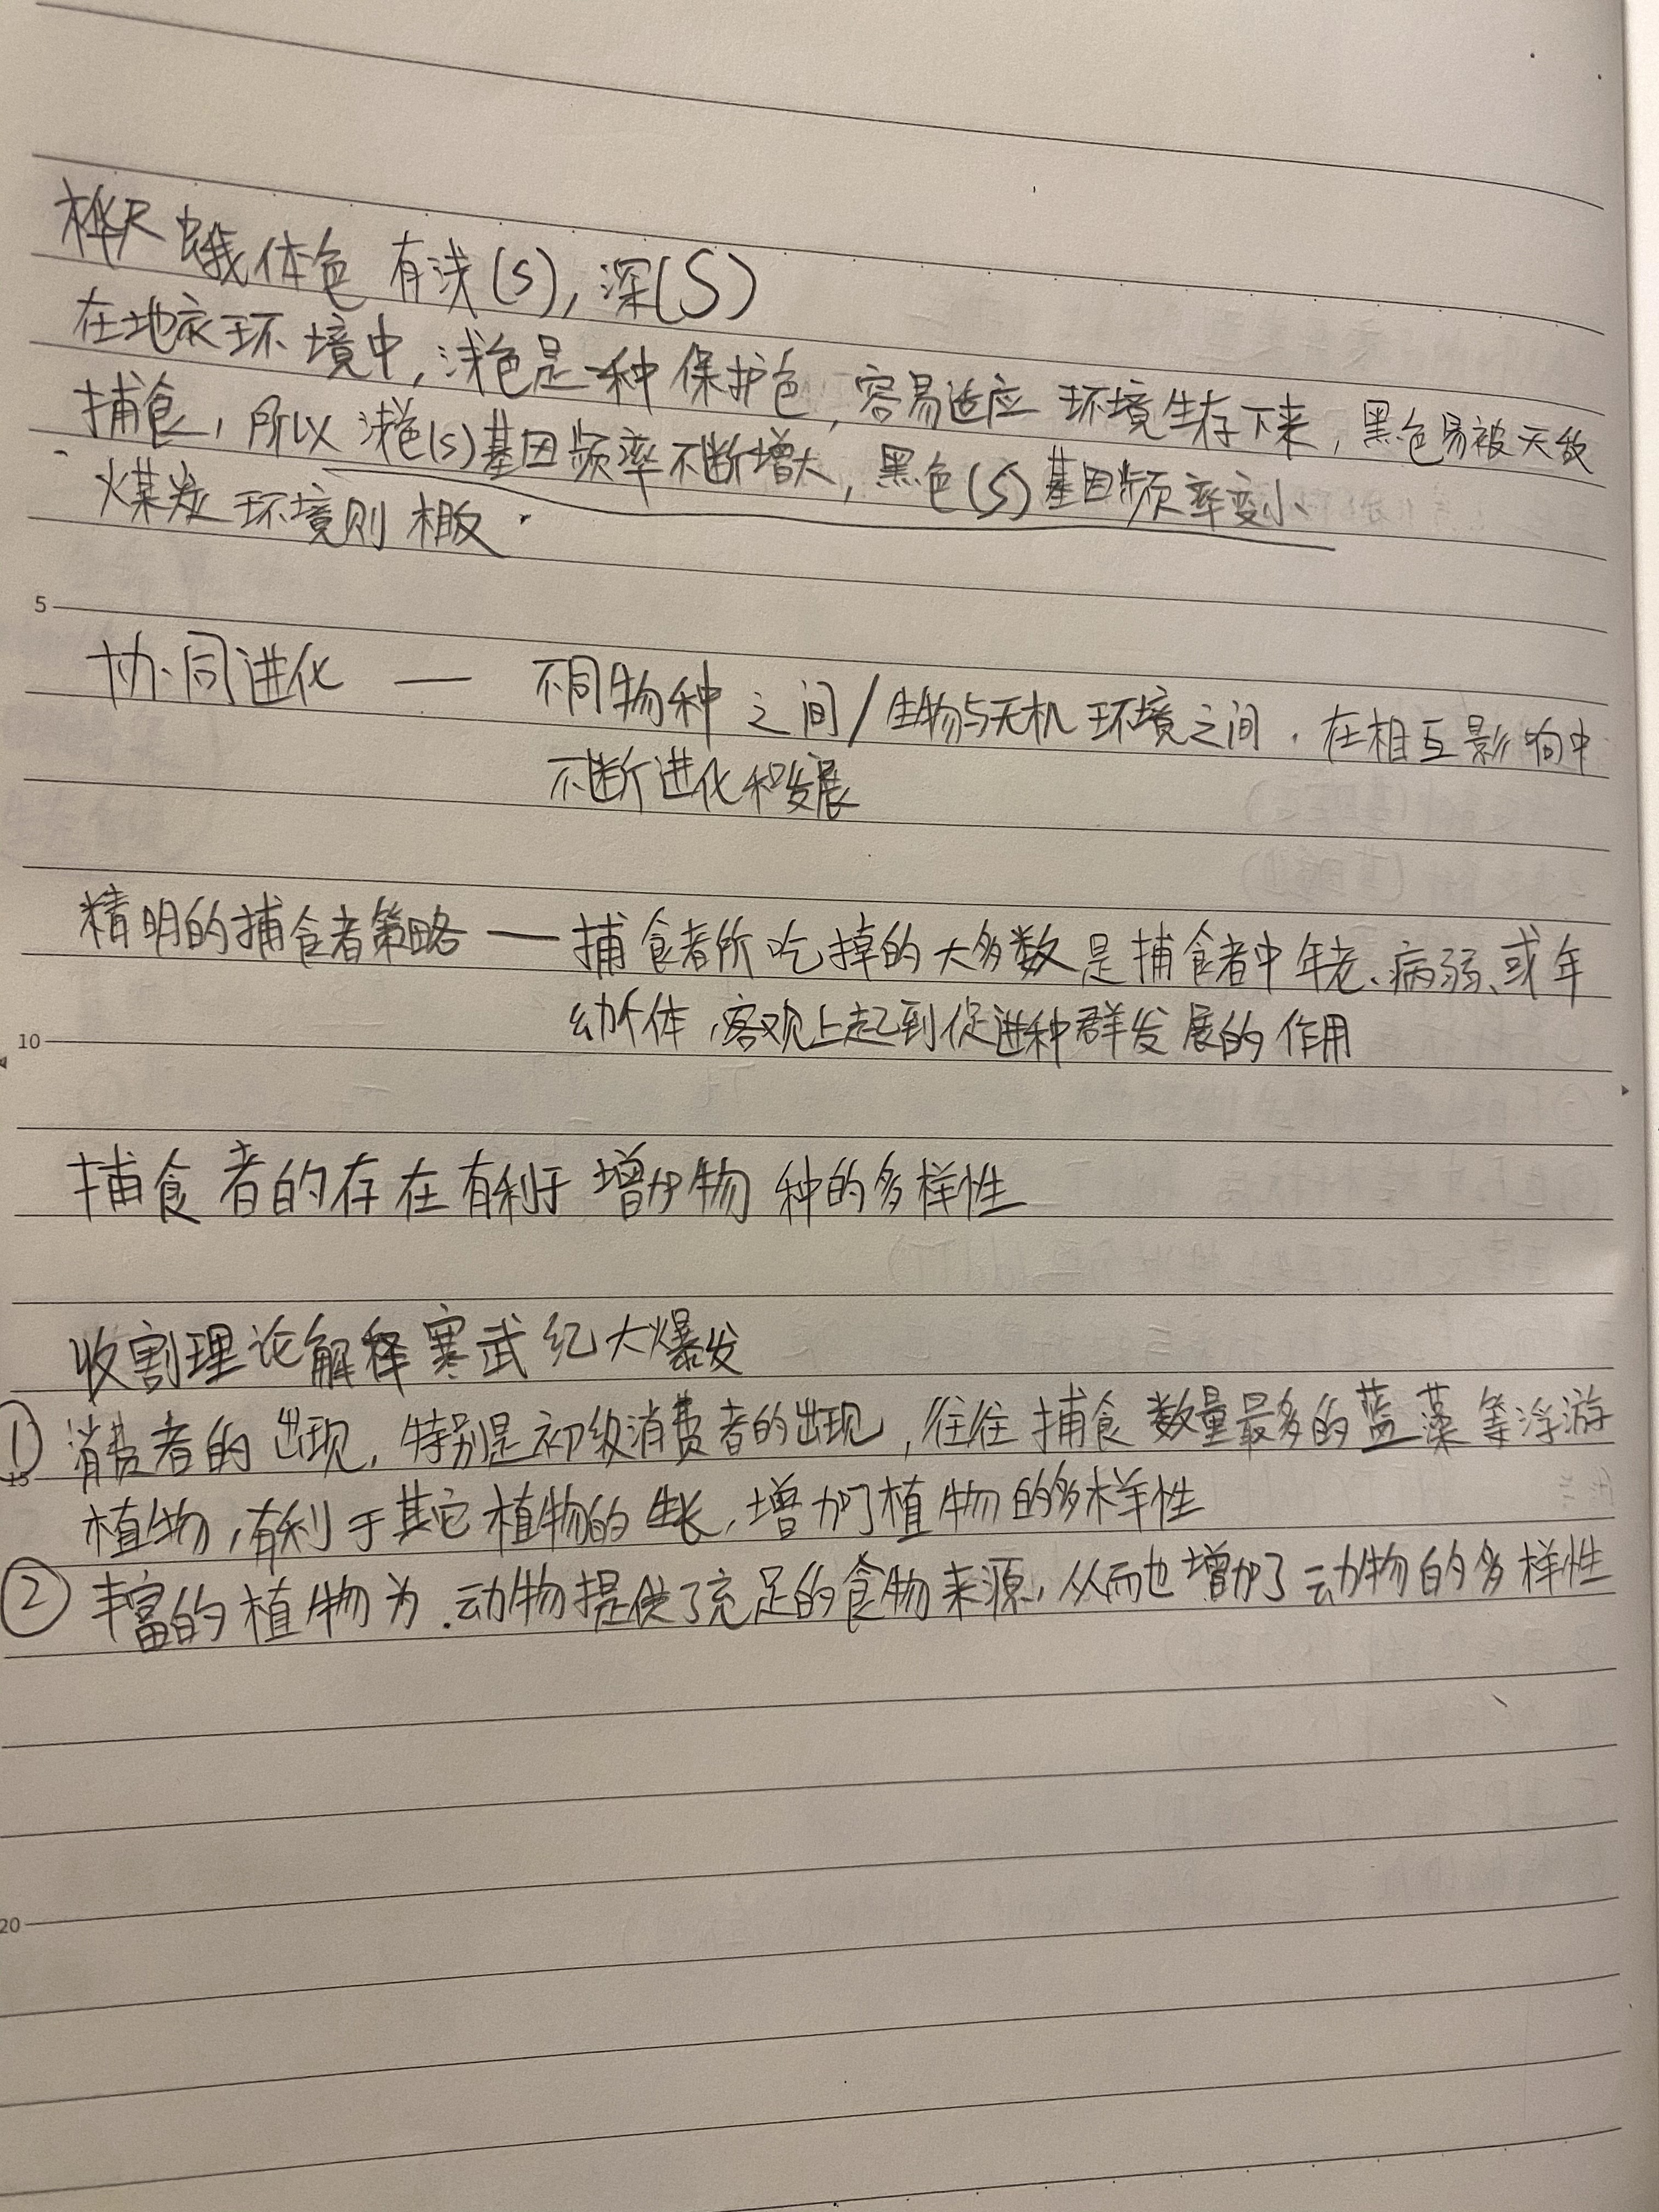 桦尺蠖体色 有浅(s), 深(S)
在地衣环境中, 浅色是一种保护色, 容易适应 环境生存下来, 黑色易被天敌
捕食, 所以 浅色(s)基因频率不断增大, 黑色(S)基因频率变小
、煤炭环境则相反.
5
协同进化 — 不同物种之间/生物与无机环境之间. 在相互影响中
不断进化和发展
精明的捕食者策略 — 捕食者所吃掉的大多数是捕食者中年老、病弱、或年
幼个体, 客观上起到促进种群发展的作用
10
捕食者的存在有利于增加物种的多样性
收割理论解释寒武纪大爆发
15
① 消费者的出现, 特别是初级消费者的出现, 往往捕食数量最多的蓝藻等浮游
植物, 有利于其它植物的生长, 增加了植物的多样性
② 丰富的植物为.动物提供了充足的食物来源, 从而也增加了动物的多样性
20